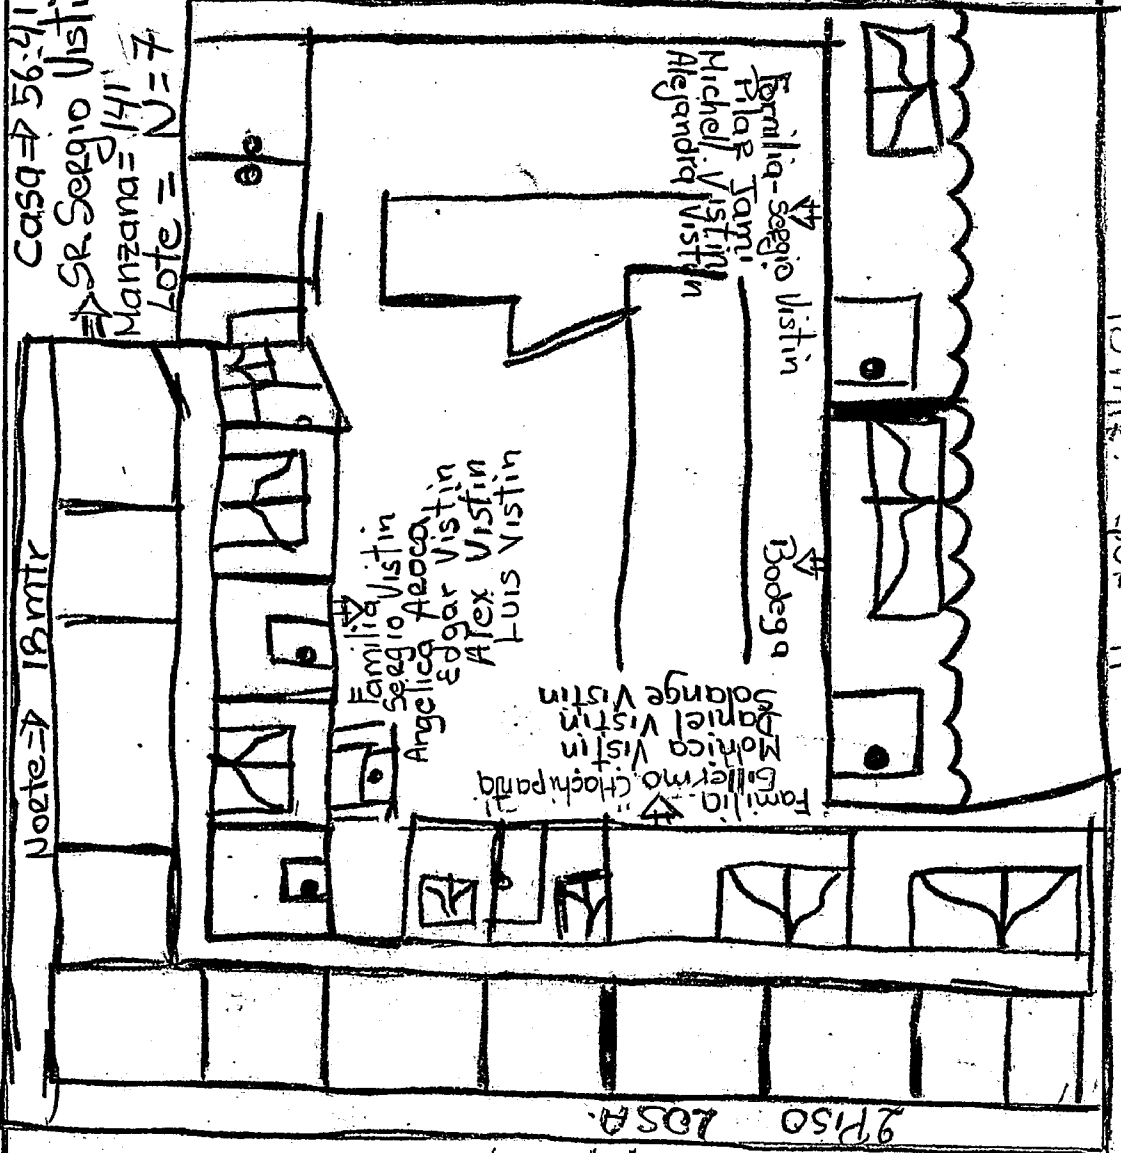 Casa => 56.41
=> SR. Sergio Visti
Manzana = 141
Lote = N = 7
Familia - Sergio Vistin
Pilar Tami
Michell Vistin
Alejandra Vistin
Familia
Sergio Vistin
Angelica Aroca
Edgar Vistin
Alex Vistin
Luis Vistin
Bodega
Familia
Gillermo
Monica Vistin
Daniel Vistin
Solange Vistin
Noete => 18 mtr
2 Piso LOSA.